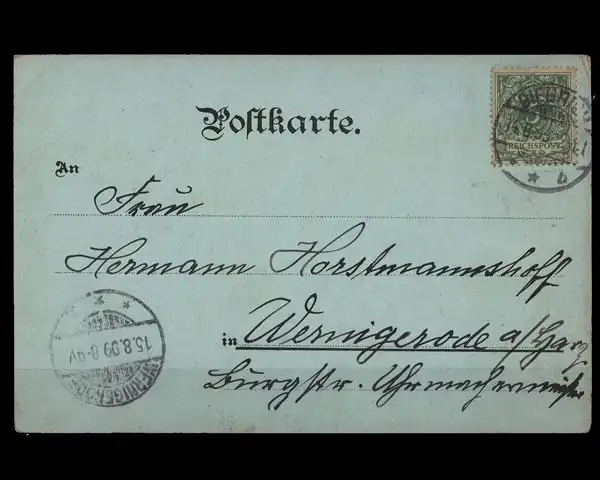 Postkarte.
5
REICHSPOST
An
Frau
Hermann Horstmannshoff
in Wernigerode a/Harz
Burgstr. Uhrmachermeister
15.8.99 8-9V
WERNIGERODE